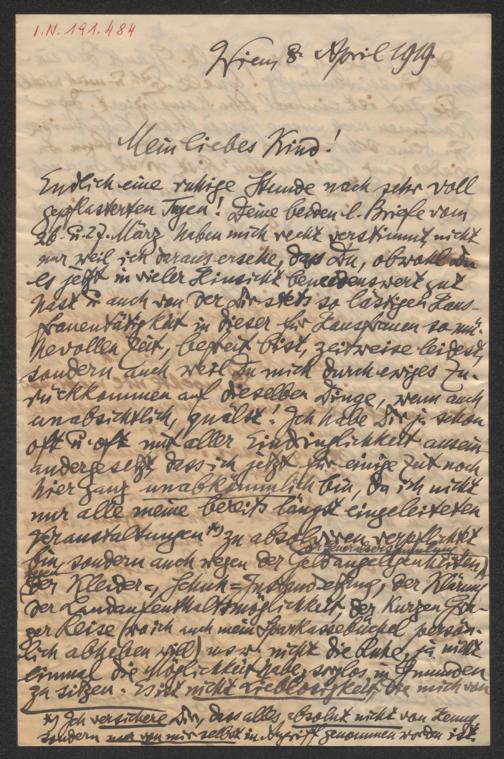 I.N. 191.484
Wien, 8. April 1919.
Mein liebes Kind!
Endlich eine ruhige Stunde nach sehr voll
gepflasterten Tagen! Deine beiden l. Briefe vom
26. u. 27. März haben mich recht verstimmt, nicht
nur weil ich daraus ersehe, daß Du, obwohl Du
es jetzt in vieler Hinsicht beneidenswert gut
hast u. auch von der Dir stets so lästigen Haus-
frauentätigkeit in dieser für Hausfrauen so mü-
hevollen Zeit, befreit bist, zeitweise leidest,
sondern auch weil Du mich durch ewiges Zu-
rückkommen auf dieselben Dinge, wenn auch
unabsichtlich, quälst! Ich habe Dir ja schon
oft u. oft mit aller Eindringlichkeit ausein
andergesetzt dass ich jetzt für einige Zeit noch
hier ganz unabkömmlich bin, da ich nicht
nur alle meine bereits längst eingeleiteten
Veranstaltungen *) zu absolvieren verpflichtet
bin, sondern auch wegen der Geldangelegenheiten,
der Kleider-, Schuh-Instandsetzung, der Klärung
der Landaufenthaltsmöglichkeit der kurzen
ger Reise (wo ich auch mein Sparkassebüchel persön-
lich abheben will) usw. nicht die Ruhe, ja nicht
einmal die Möglichkeit habe, sorglos in Gmunden
zu sitzen. Es ist nicht Lieblosigkeit die mich von
*) Ich versichere Dir, dass alles, absolut nicht von Jenny
sondern nur von mir selbst in Angriff genommen worden ist.